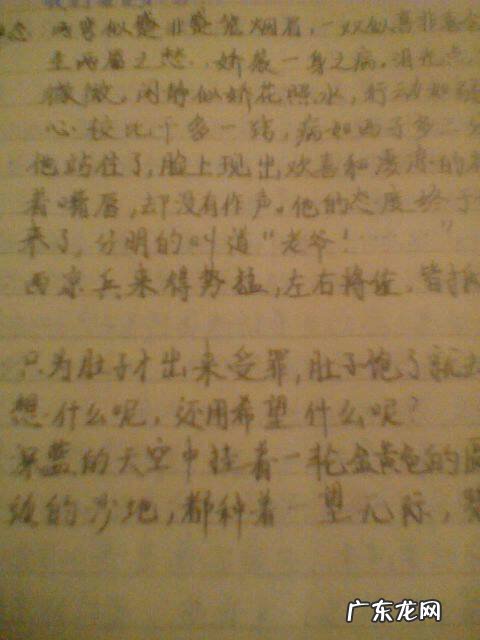 两弯似蹙非蹙笼烟眉，一双似喜非喜含
生两靥之愁，娇袭一身之病。泪光点
微微。闲静似娇花照水，行动如弱
心较比干多一窍，病如西子多三分
他站住了，脸上现出欢喜和凄凉的
着嘴唇，却没有作声。他的态度终于
来了，分明的叫道“老爷！”
西凉兵来得势猛，左右将佐，皆抵
只为肚子才出来受罪，肚子饱了就去
想什么呢，还用希望什么呢？
深蓝的天空中挂着一轮金黄色的圆
的沙地，都种着一望无际，
广东龙网